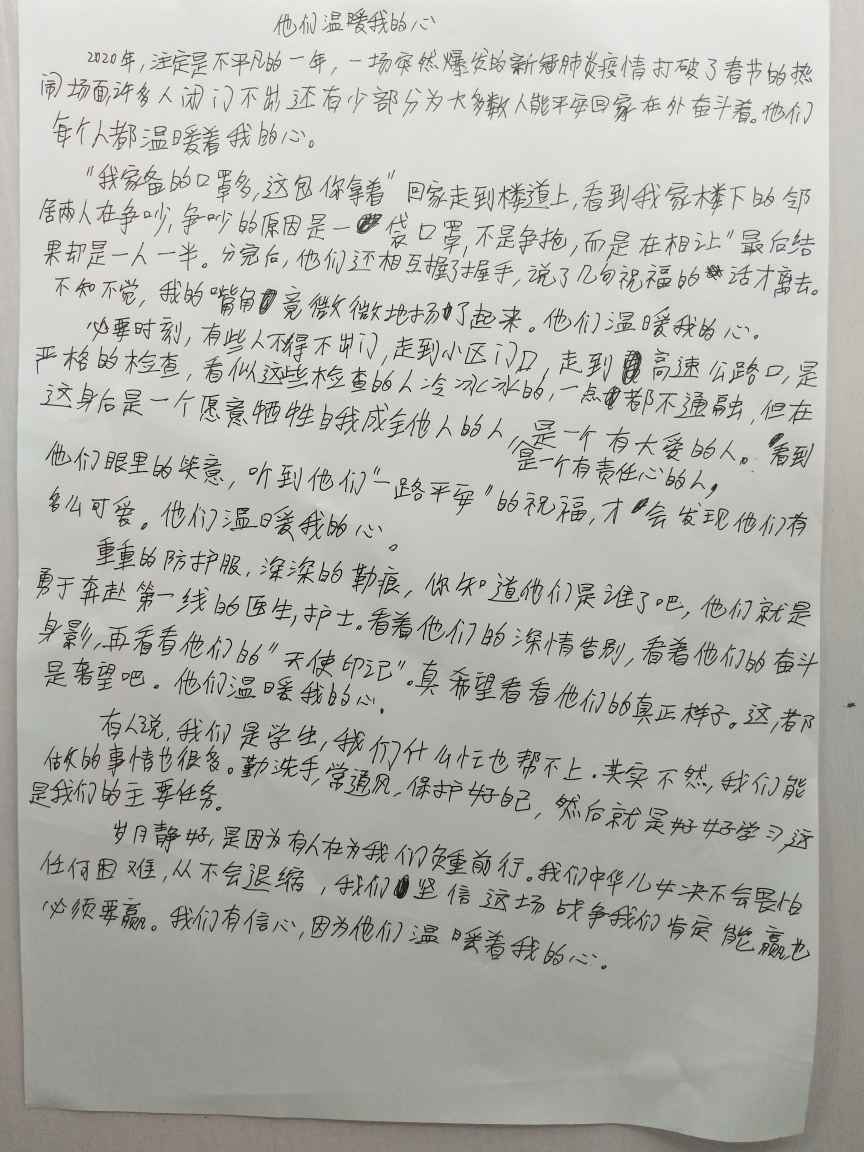 他们温暖我的心
2020年，注定是不平凡的一年，一场突然爆发的新冠肺炎疫情打破了春节的热
闹场面，许多人闭门不出还有少部分为大多数人能平安回家在外奋斗着。他们
每个人都温暖着我的心。
“我家备的口罩多，这包你拿着”回家走到楼道上，看到我家楼下的邻
居两人在争吵，争吵的原因是一袋口罩，不是争抢，而是在相让”最后结
果却是一人一半。分完后，他们还相互握了握手，说了几句祝福的话才离去。
不知不觉，我的嘴角竟微微地扬了起来。他们温暖我的心。
必要时刻，有些人不得不出门，走到小区门口，走到高速公路口，是
严格的检查，看似这些检查的人冷冰冰的，一点都不通融，但在
这身后是一个愿意牺牲自我成全他人的人，是一个有大爱的人。看到
是一个有责任心的人，
他们眼里的笑意，听到他们“一路平安”的祝福，才会发现他们有
多么可爱。他们温暖我的心。
重重的防护服，深深的勒痕，你知道他们是谁了吧，他们就是
勇于奔赴第一线的医生，护士。看着他们的深情告别，看着他们的奋斗
身影，再看看他们的“天使印记”。真希望看看他们的真正样子。这，都
是奢望吧。他们温暖我的心。
有人说，我们是学生，我们什么忙也帮不上．其实不然，我们能
做的事情也很多。勤洗手，常通风，保护好自己，然后就是好好学习，这
是我们的主要任务。
岁月静好，是因为有人在为我们负重前行。我们中华儿女决不会畏怕
任何困难，从不会退缩，我们坚信这场战争我们肯定能赢，也
必须要赢。我们有信心，因为他们温暖着我的心。